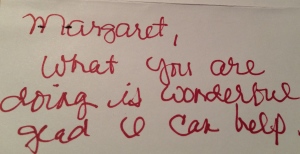 Margaret,
What you are
doing is wonderful
glad I can help.